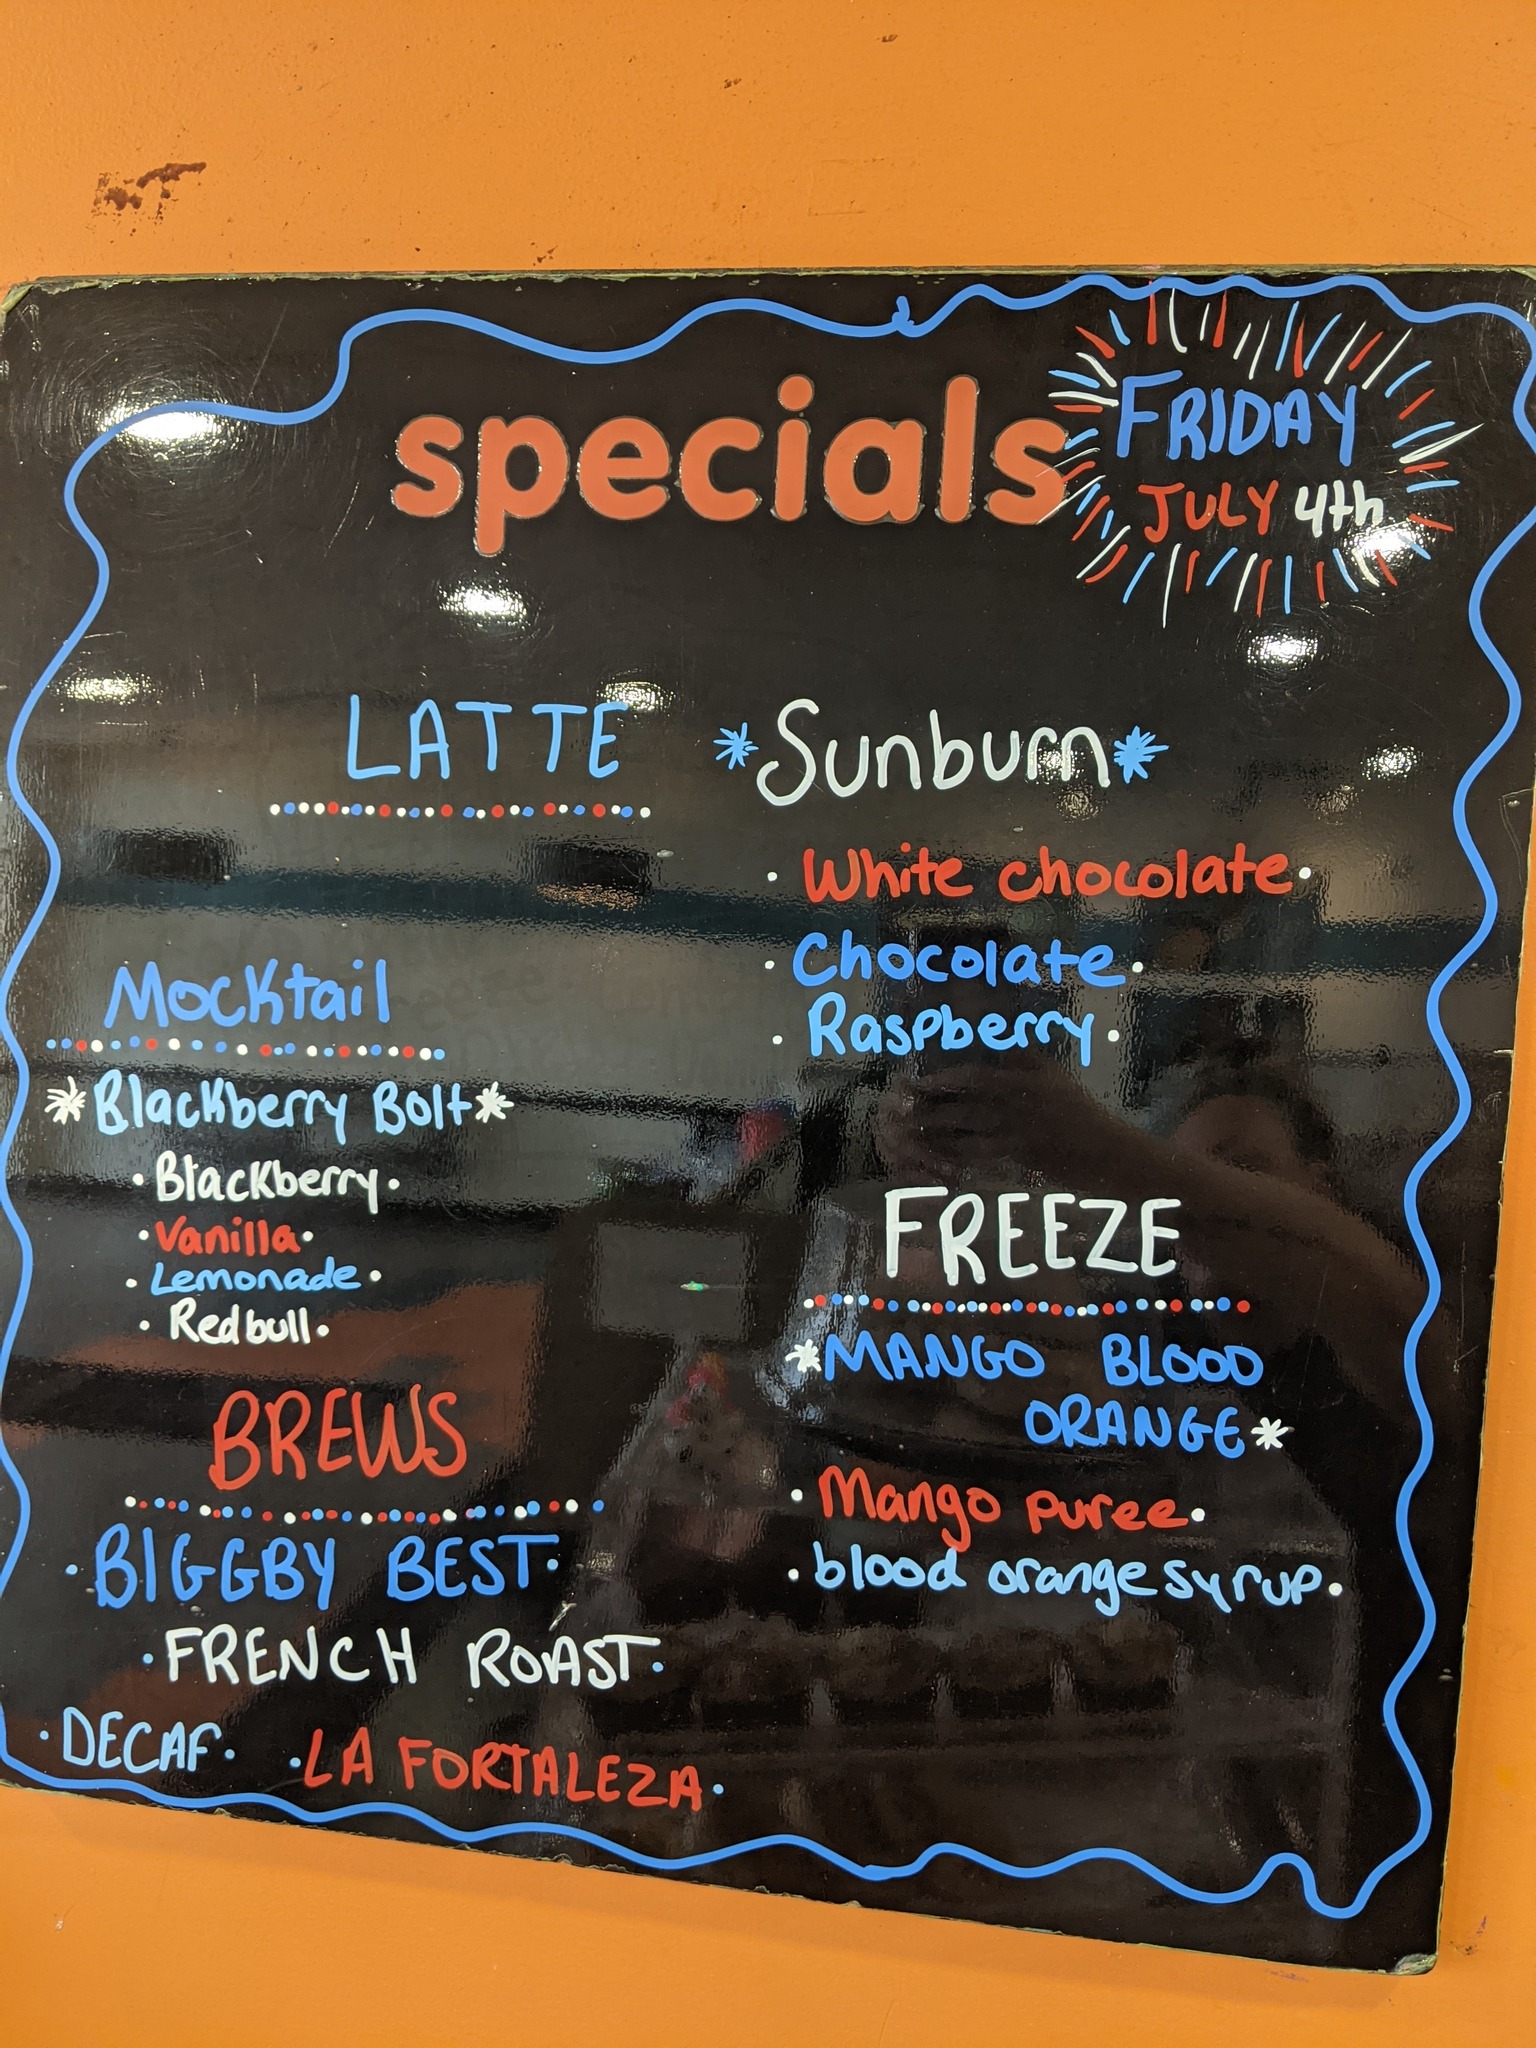 specials
FRIDAY
JULY 4th
LATTE
*Sunburn*
· White chocolate ·
· Chocolate ·
· Raspberry ·
Mocktail
*Blackberry Bolt*
· Blackberry ·
· Vanilla ·
· Lemonade ·
· Redbull ·
FREEZE
*MANGO BLOOD
ORANGE*
· Mango puree ·
· blood orange syrup ·
BREWS
· BIGGBY BEST ·
· FRENCH ROAST ·
· DECAF · · LA FORTALEZA ·